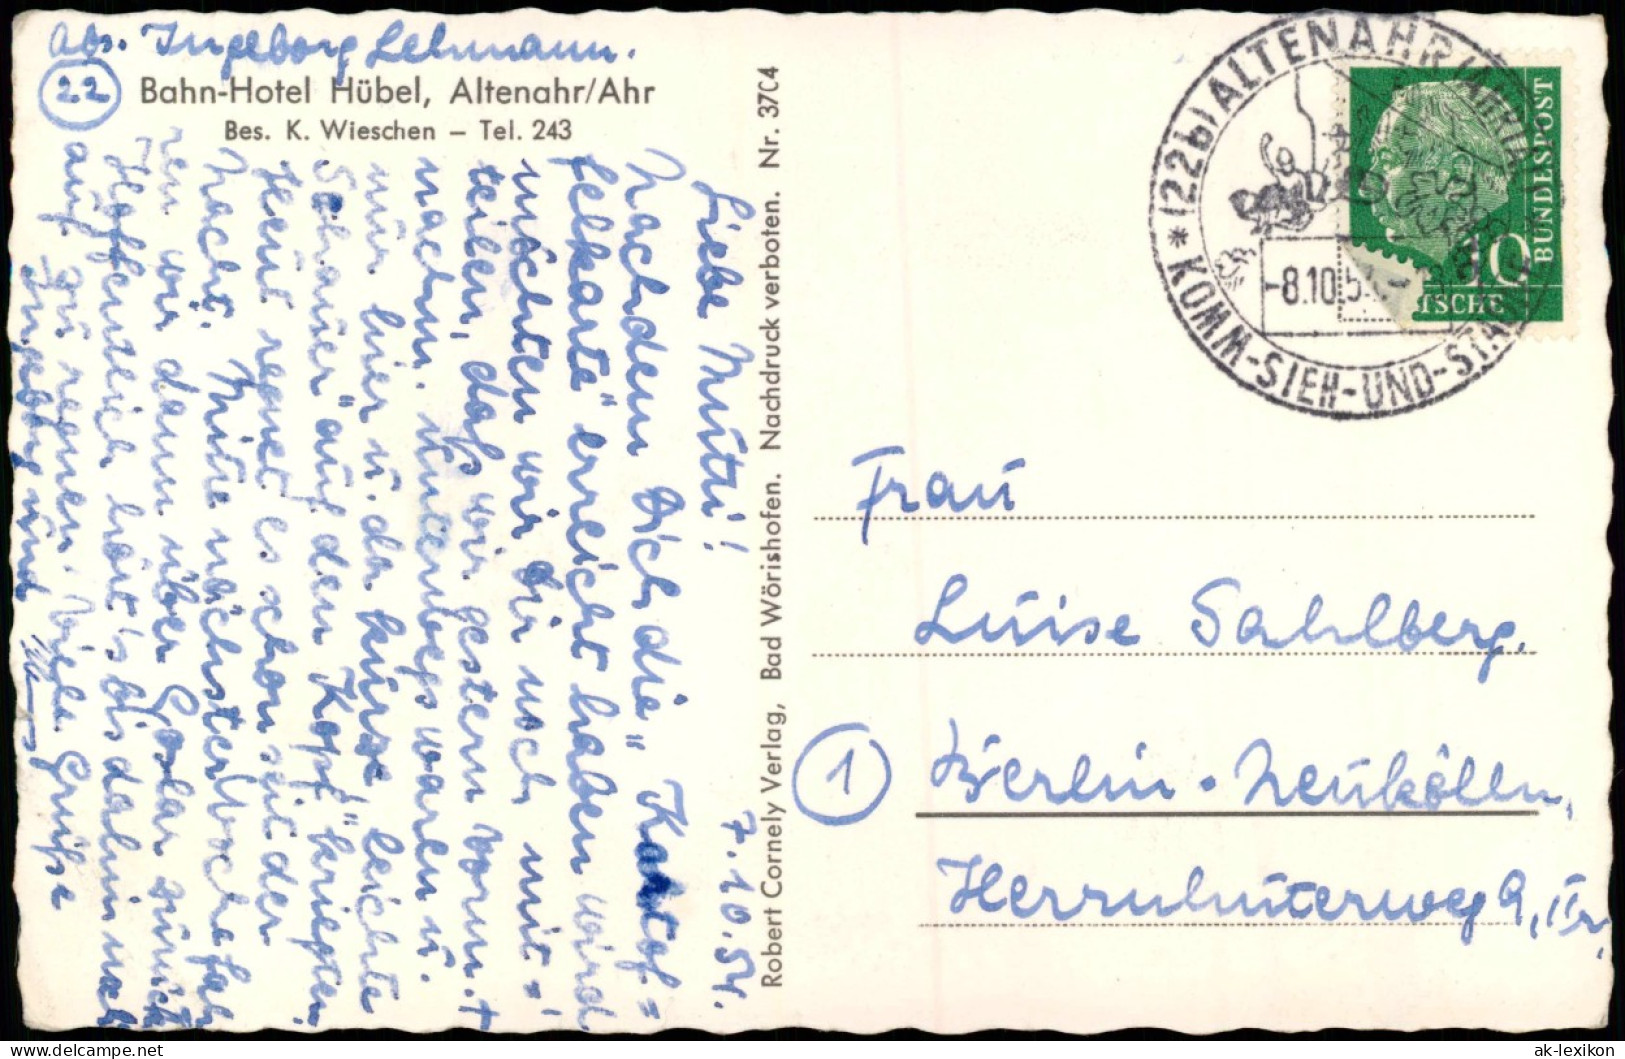 Abs. Ingeborg Lehmann.
(22) Bahn-Hotel Hübel, Altenahr/Ahr
Bes. K. Wieschen – Tel. 243
7.10.54.
Liebe Mutti!
Nachdem Dich die "Kartof=
felkarte" erreicht haben wird
möchten wir dir noch mit=
teilen, daß wir gestern vorm. +
nachm. unterwegs waren u.
nur hier u. da kurze, leichte
"Schauer" auf den Kopf kriegten.
Heut regnet es schon seit der
Nacht. Mitte nächster Woche fah
ren wir dann über Goslar zurück
Hoffentlich hört's bis dahin noch
auf zu regnen. Viele Grüße
Ingeborg und
Robert Cornely Verlag, Bad Wörishofen. Nachdruck verboten. Nr. 37C4
(22b) ALTENAHR/AHR
* KOMM-SIEH-UND-
-8.10.54
BUNDESPOST
10
TSCHE
Frau
Luise Sahlberg.
(1) Berlin-Neukölln,
Herrnhuterweg 9, IIr.
ak-lexikon